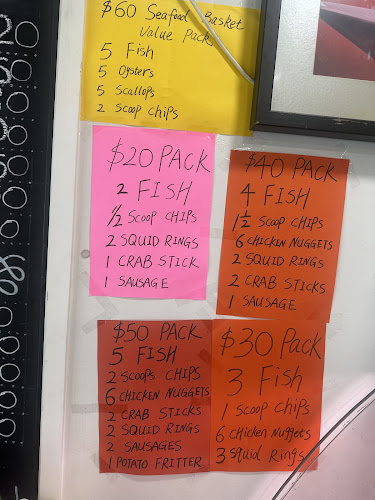 $60 Seafood Basket
Value Pack
5 Fish
5 Oysters
5 Scallops
2 Scoop Chips
$20 PACK
2 FISH
1/2 SCOOP CHIPS
2 SQUID RINGS
1 CRAB STICK
1 SAUSAGE
$40 PACK
4 FISH
1 1/2 SCOOP CHIPS
6 CHICKEN NUGGETS
2 SQUID RINGS
2 CRAB STICKS
1 SAUSAGE
$50 PACK
5 FISH
2 SCOOPS CHIPS
6 CHICKEN NUGGETS
2 CRAB STICKS
2 SQUID RINGS
2 SAUSAGES
1 POTATO FRITTER
$30 Pack
3 Fish
1 Scoop Chips
6 Chicken Nuggets
3 Squid Rings